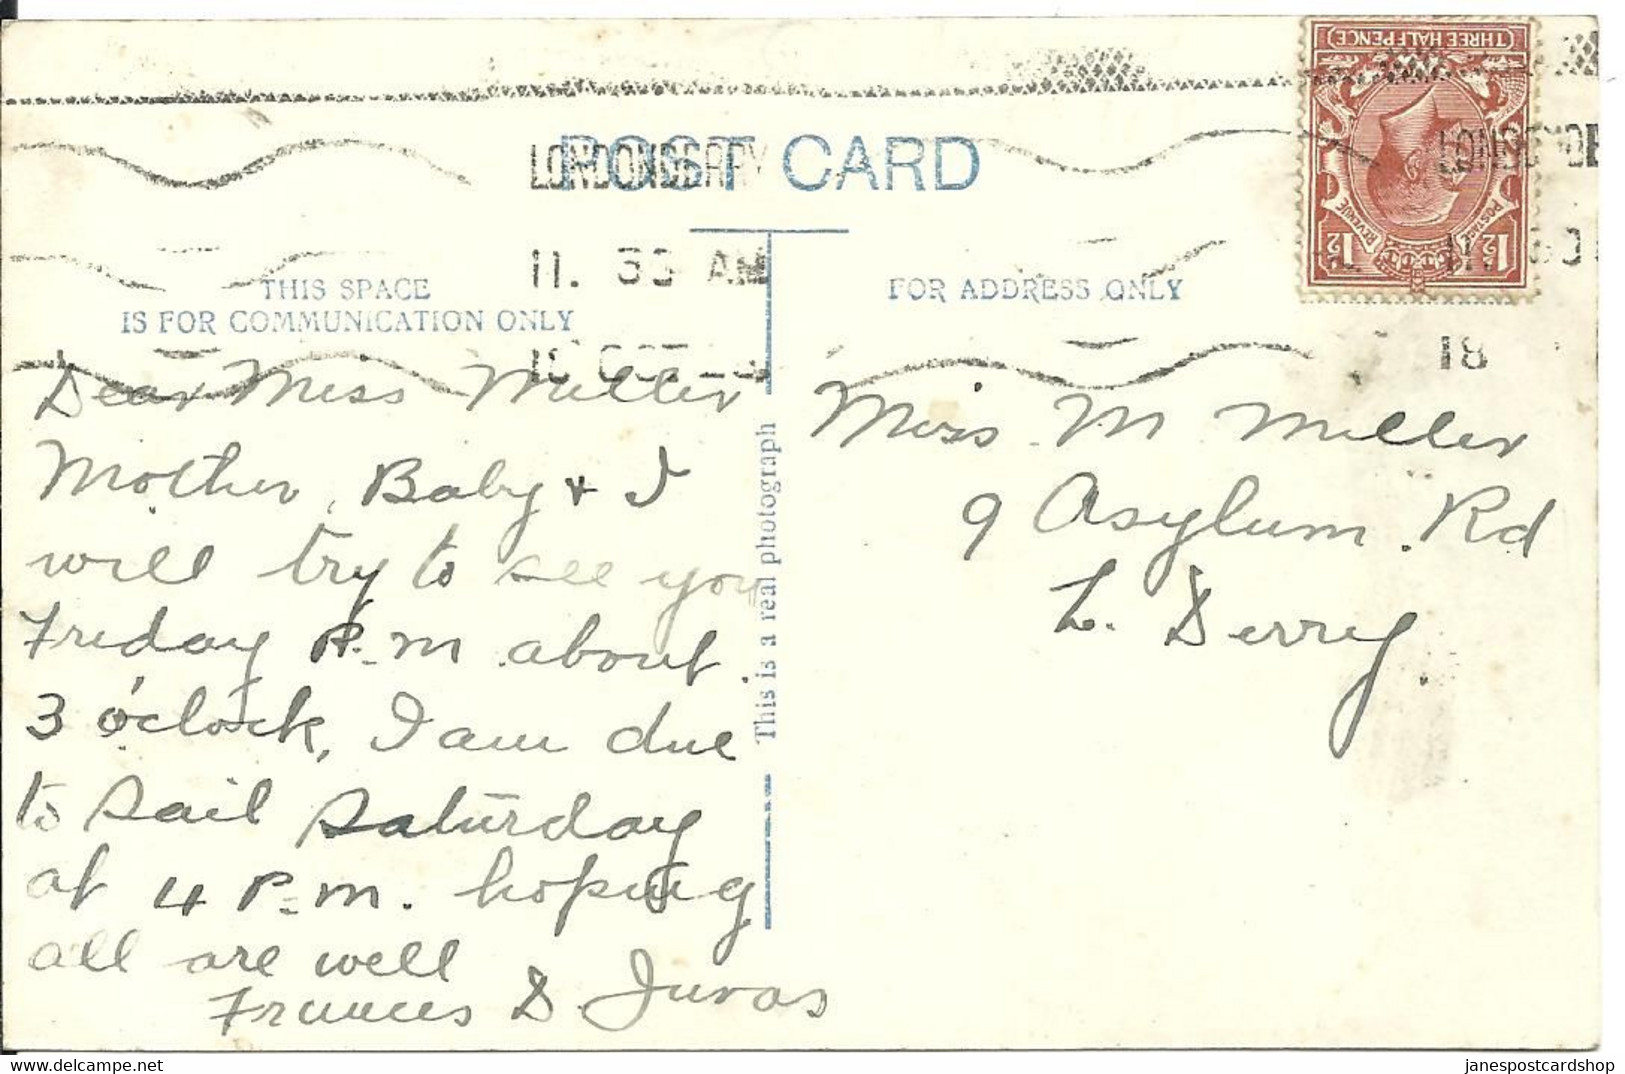 (THREE HALFPENCE)
POSTAGE
REVENUE
1½
1½
LONDONDERRY
11. 30 AM
OCT
18
11. 30
POST CARD
THIS SPACE
IS FOR COMMUNICATION ONLY
FOR ADDRESS ONLY
This is a real photograph
Dear Miss Miller
Mother, Baby & I
will try to see you
Friday P.M. about
3 o'clock, I am due
to sail Saturday
at 4 P.M. hoping
all are well
Frances D.
Miss M Miller
9 Asylum Rd
L. Derry.
janespostcardshop